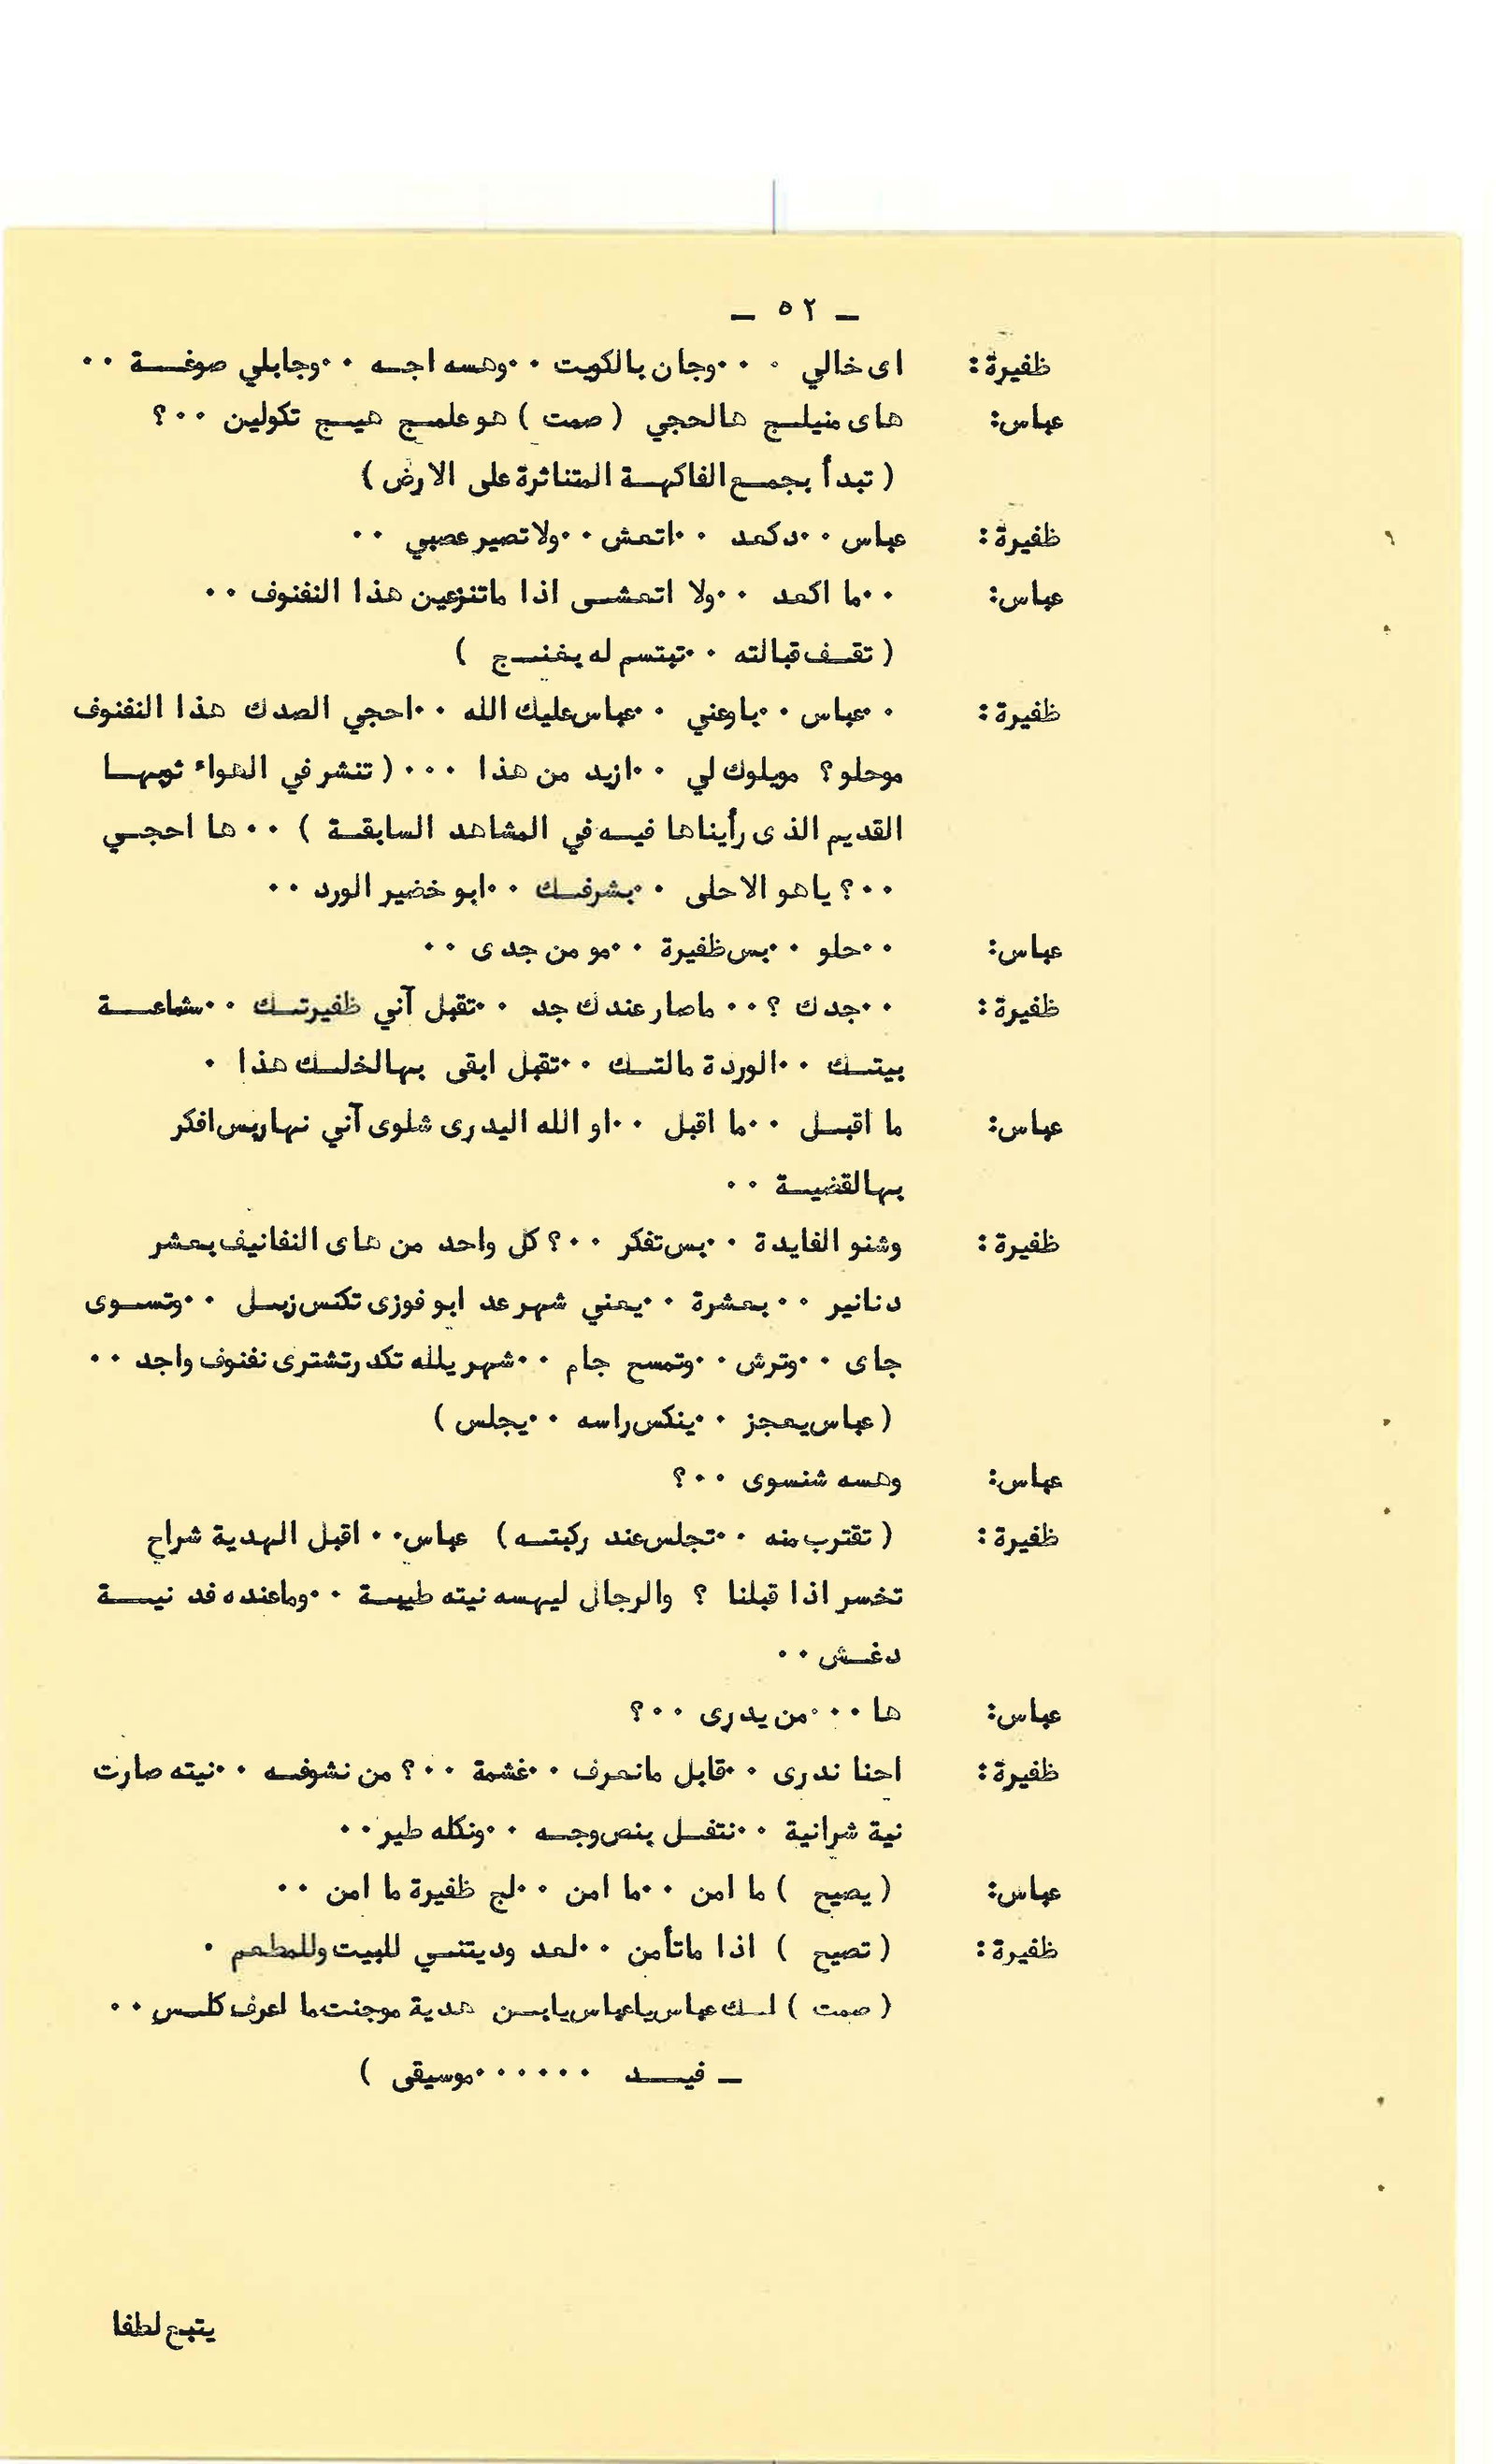 ـ ٥٢ ـ
ظفيرة: اى خالي ٠ ٠٠وجان بالكويت ٠٠وهسه اجـه ٠٠وجابلي صوغـة ٠٠
عباس: هاى منيلـج هالحجي ( صمت ) هو علمـج هيـج تكولين ٠٠٠؟
( تبدأ بجمـع الفاكهـة المتناثرة على الارض )
ظفيرة: عباس ٠٠دكعد ٠٠اتعش ٠٠ولا تصير عصبي ٠٠
عباس: ٠٠ما اكعد ٠٠ولا اتعشـى اذا ماتنزعين هذا النفنوف ٠٠
( تقـف قبالته ٠٠تبتسم له بغنـج )
ظفيرة: ٠٠عباس ٠٠باوعني ٠٠عباس عليك الله ٠٠احجي الصدك هذا النفنوف
موحلو؟ مويلوك لي ٠٠ازيد من هذا ٠٠٠( تنشر في الهواء ثوبهـا
القديم الذى رأيناها فيـه في المشاهد السابقـة ) ٠٠ها احجـي
٠٠؟ ياهو الاحلى ٠٠بشرفـك ٠٠ابو خضير الورد ٠٠
عباس: ٠٠حلو ٠٠بس ظفيرة ٠٠مو من جدى ٠٠
ظفيرة: ٠٠جدك ؟٠٠ ماصار عندك جد ٠٠تقبل آني ظفيرتـك ٠٠شماعـة
بيتـك ٠٠الوردة مالتـك ٠٠تقبل ابقى بهالخلـك هذا ٠
عباس: ما اقبـل ٠٠ما اقبل ٠٠او الله اليدرى شلوى آني نهاربس افكر
بهالقضيـة ٠٠
ظفيرة: وشنو الفايدة ٠٠بس تفكر ٠٠؟ كل واحد من هاى النفانيف بعشر
دنانير ٠٠بعشرة ٠٠يعني شهر عد ابو فوزى تكنس زبـل ٠٠وتسـوى
جاى ٠٠وترش ٠٠وتمسح جام ٠٠شهر يلله تكدر تشترى نفنوف واجد ٠٠
( عباس يعجز ٠٠ينكس راسه ٠٠يجلس )
عباس: وهسه شنسوى ٠٠؟
ظفيرة: ( تقترب منه ٠٠تجلس عند ركبتـه ) عباس٠٠ اقبل الهدية شراح
تخسر اذا قبلنا ؟ والرجال ليهسه نيته طيبـة ٠٠وماعنده فد نيـة
دغـش ٠٠
عباس: ها ٠٠٠من يدرى ٠٠؟
ظفيرة: احنا ندرى ٠٠قابل مانعرف ٠٠غشمة ٠٠؟ من نشوفـه ٠٠نيته صارت
نية شرانية ٠٠نتفـل بنص وجـه ٠٠ونكله طير٠٠
عباس: ( يصيح ) ما امن ٠٠ما امن ٠٠لج ظفيرة ما امن ٠٠
ظفيرة: ( تصيح ) اذا ماتأمن ٠٠لعد وديتنـي للبيت وللمطعم ٠
( صمت ) لـك عباس ياعباس يابـن هدية موجنت ما اعرف كلـس ٠٠
ـ فيـد ٠٠٠٠٠٠موسيقى )
يتبع لطفا